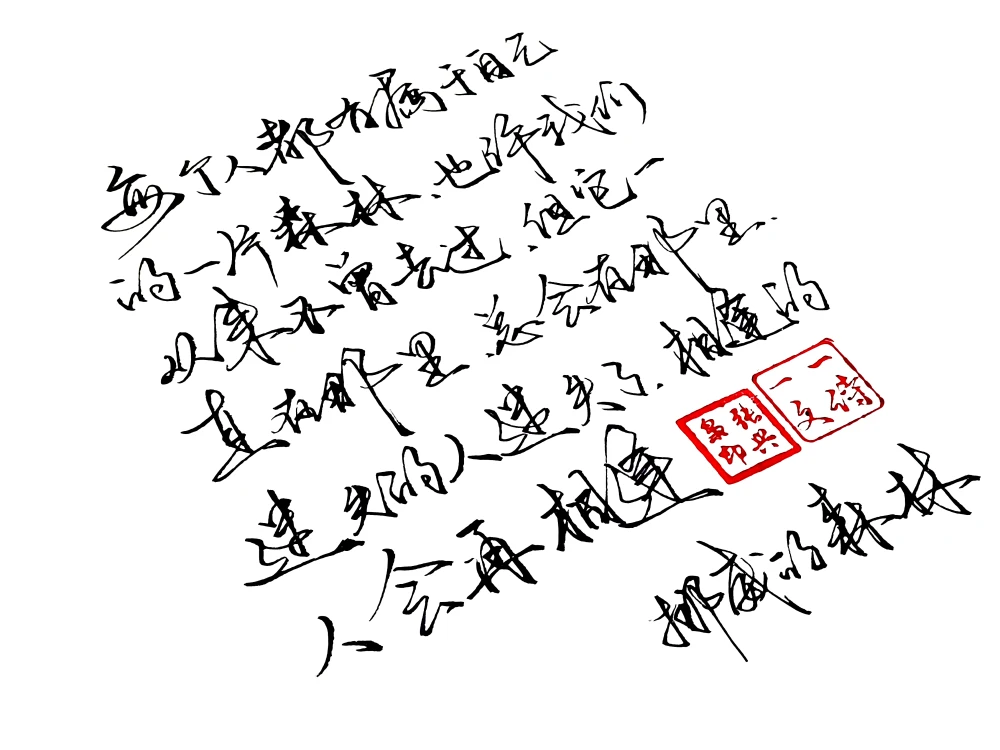 每个人都有属于自己
的一片森林.也许我们
从来不曾去过.但它一
直在那里 总会在那里.
迷失的人迷失了.相逢的
人会再相逢
挪威的森林